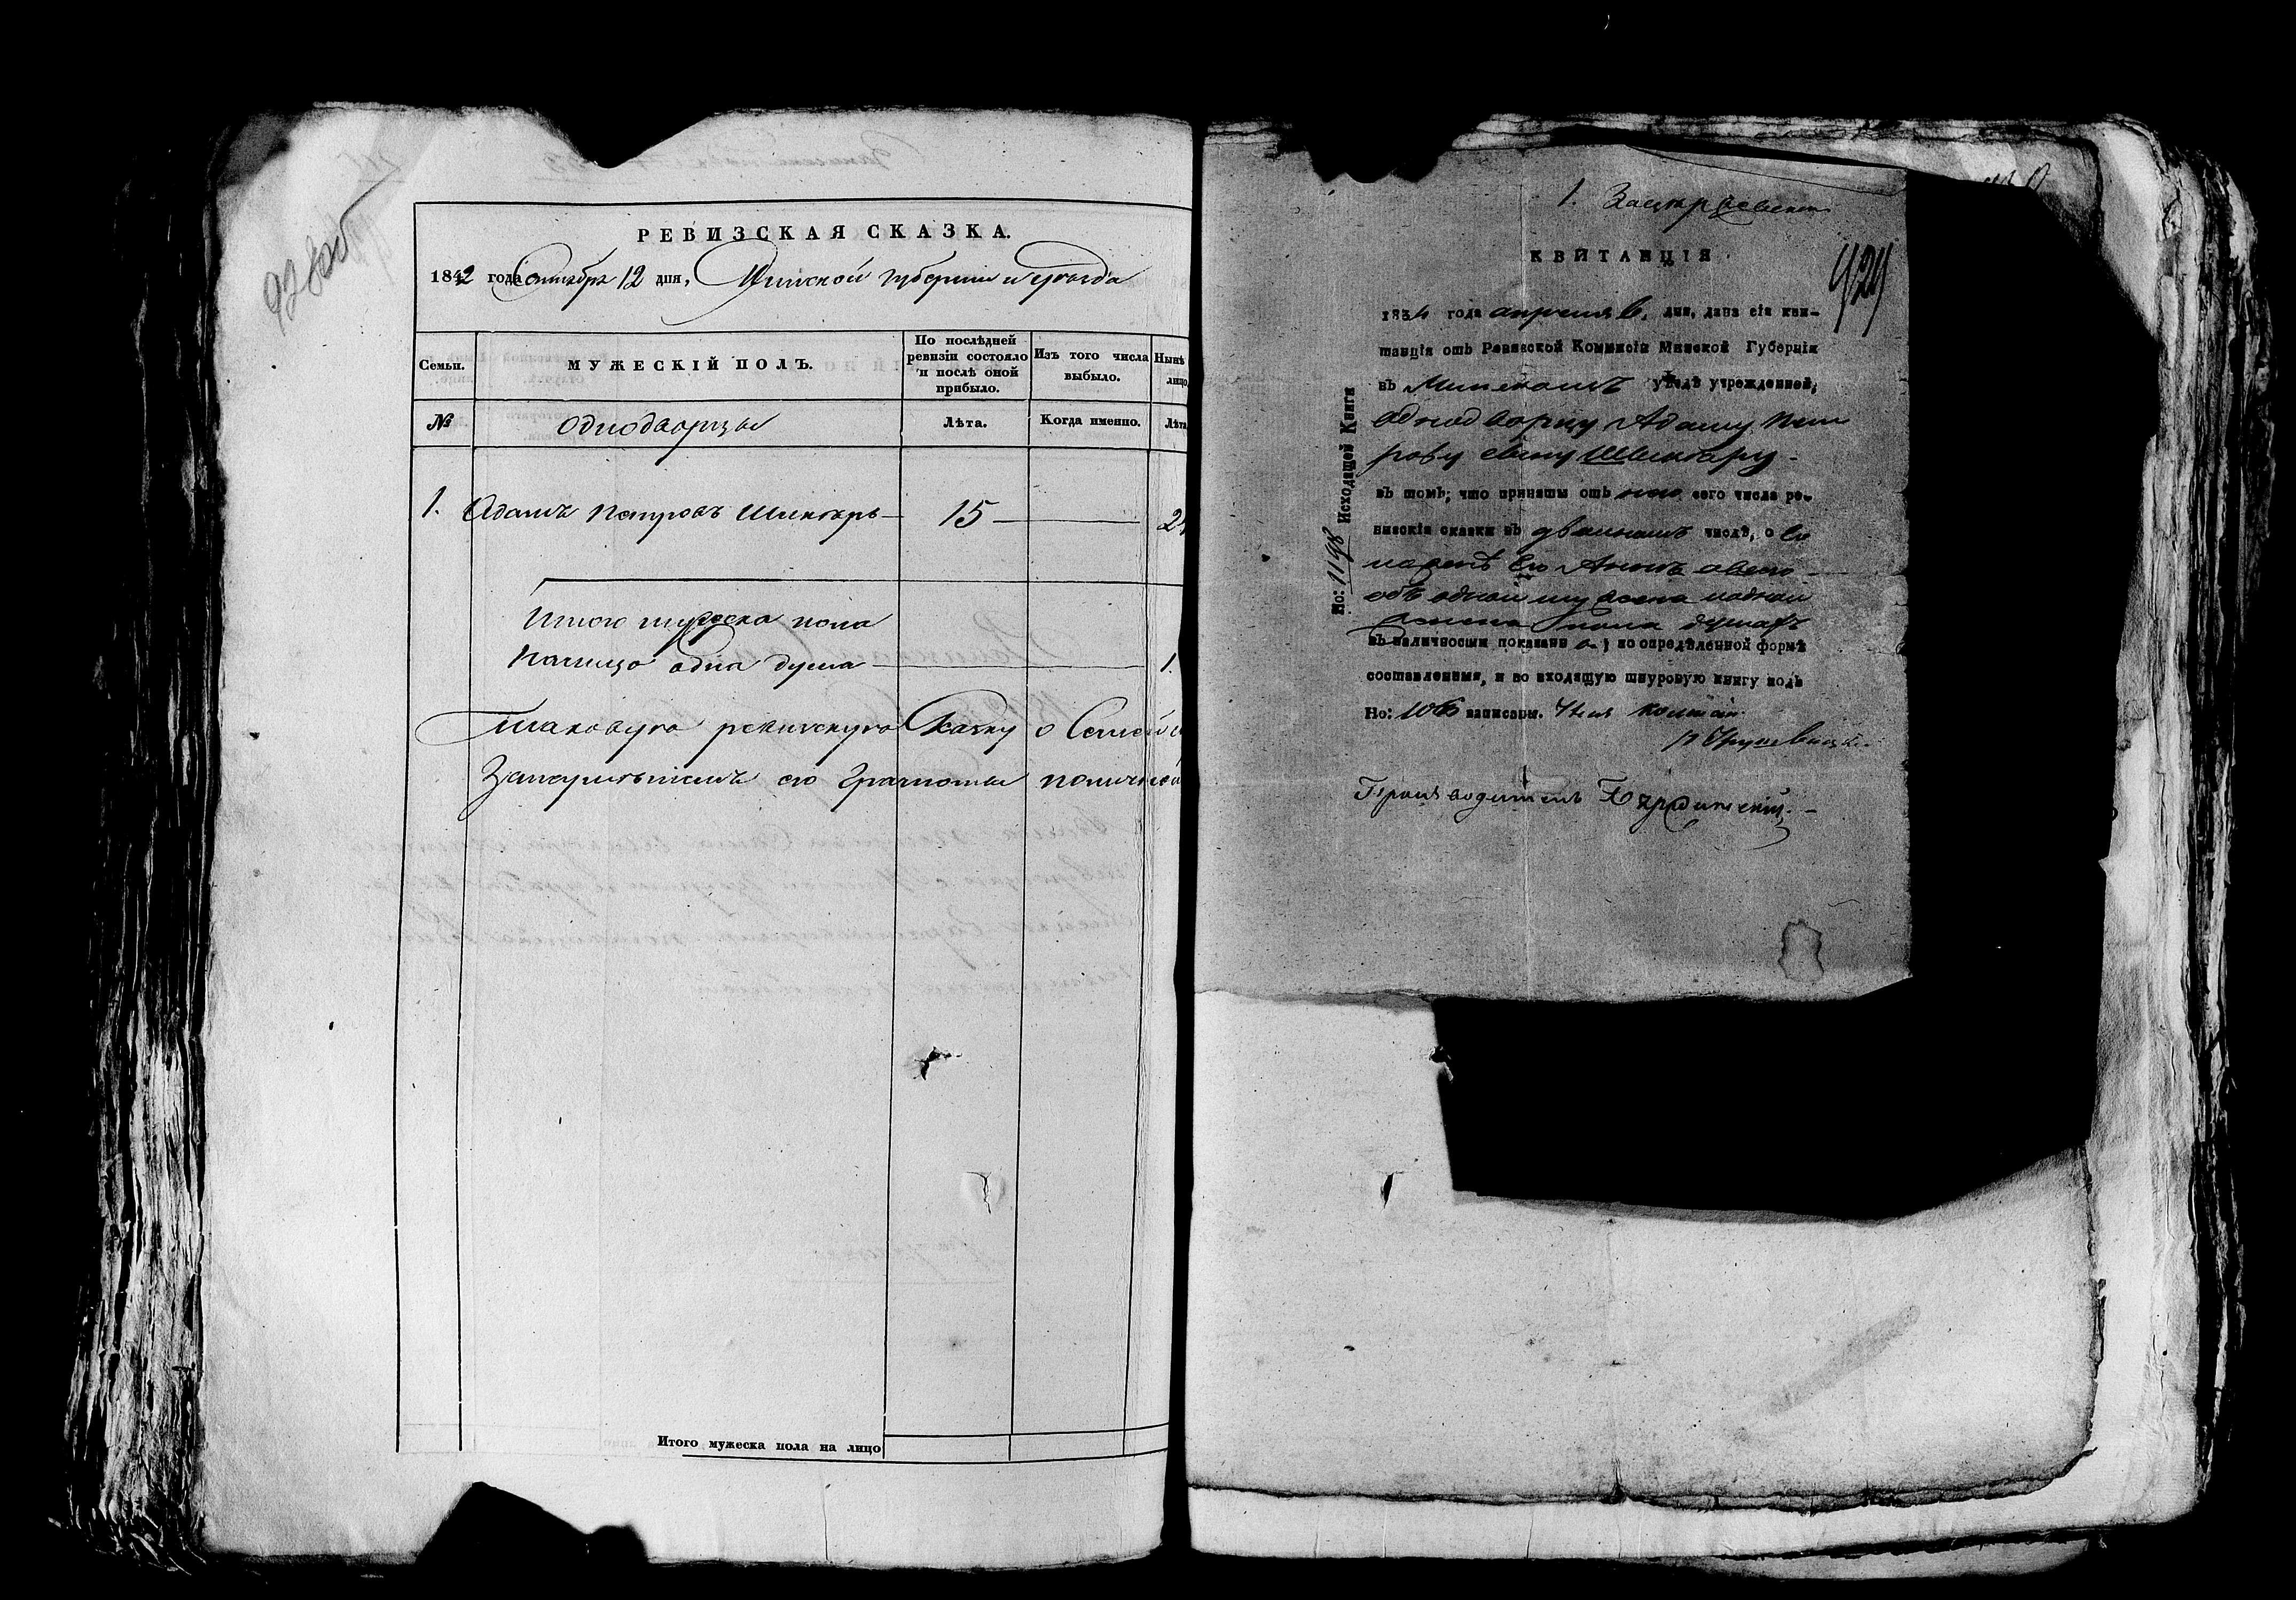 928об
РЕВИЗСКАЯ СКАЗКА.
1842 года Октября 12 дня, Минской губернии и уезда
Семьи. МУЖЕСКІЙ ПОЛЪ. По послѣдней ревизіи состояло и послѣ оной прибыло. Изъ того числа выбыло. Нынѣ лицо
№ однодворцы Лѣта. Когда именно. Лѣта
1. Адамъ Петровъ 15 2
Итого мужеска пола
налицо одна душа 1.
Таковую ревизскую сказку о семей
его грамоты
Итого мужеска пола на лицо
1.
КВИТАНЦІЯ
929
1834 года апреля 6, дня, дана сія кви-
танція отъ Ревизской Коммисіи Минской Губерніи
въ Минскомъ уѣздѣ учрежденной,
однодворцу Адаму Пет
рову сыну
въ томъ; что приняты отъ него сего числа ре-
визскія сказки въ двойномъ числѣ, о
его Аннѣ всего
объ одной мужеска и одной
женска пола душахъ
въ наличности показанн по опредѣленной формѣ
составленныя, и во входящую шнуровую книгу подъ
Но: 106 записаны. Член
Производитель
Но: 1198 Исходящей Книги